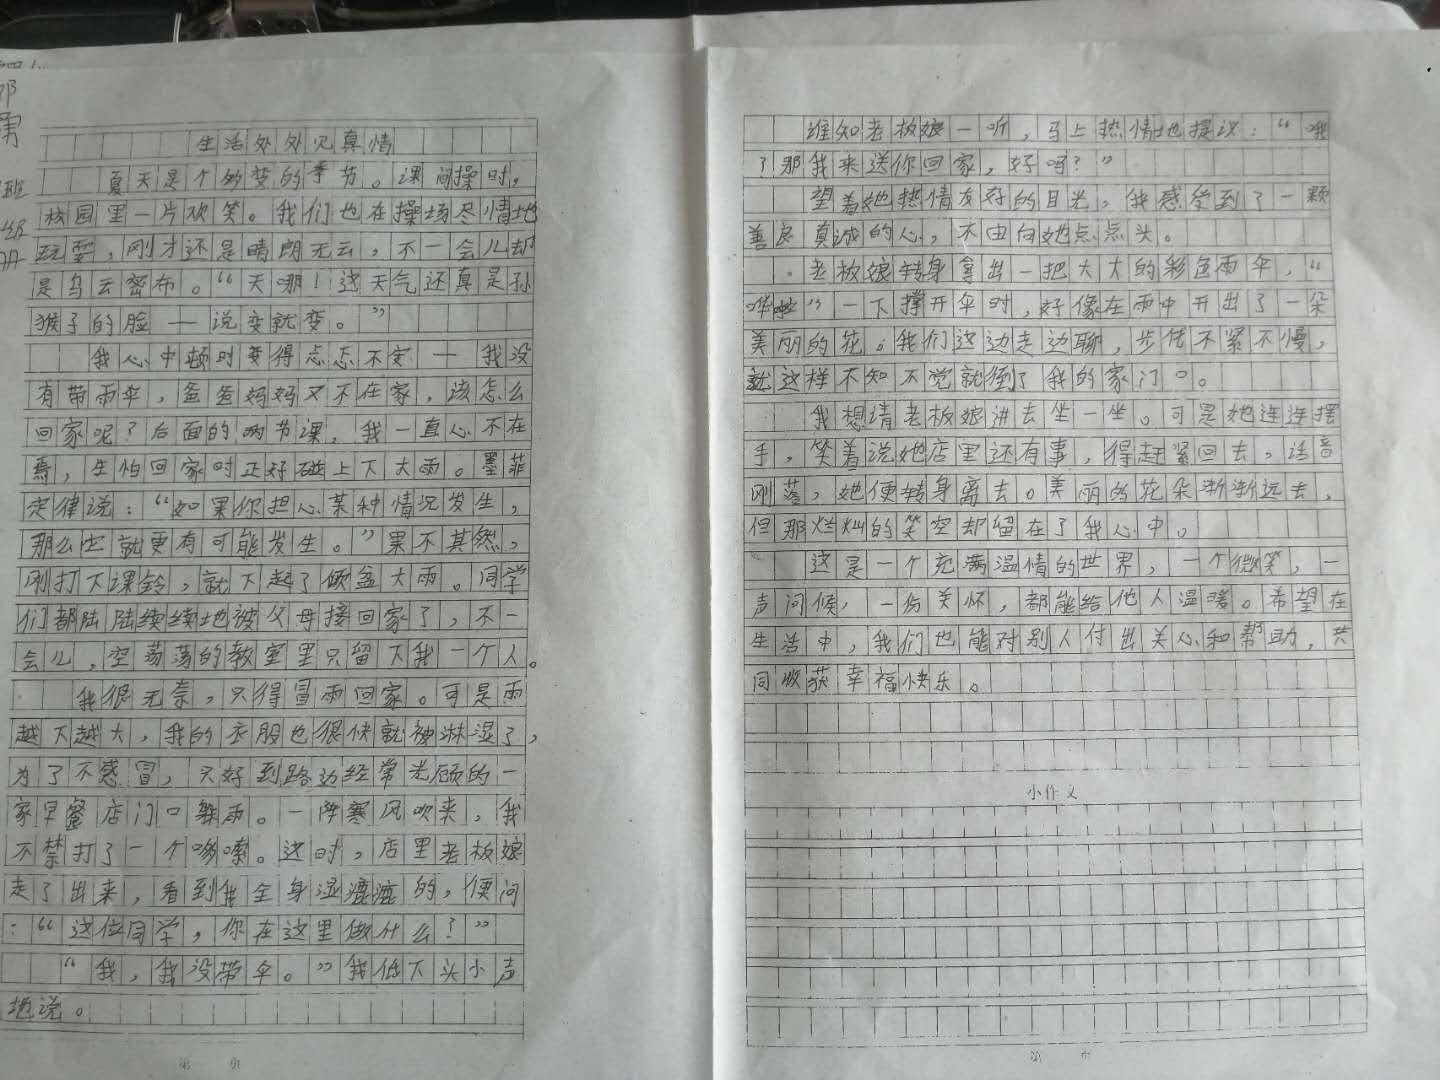 生活处处见真情
夏天是个多变的季节。课间操时，
校园里一片欢笑。我们也在操场尽情地
玩耍，刚才还是晴朗无云，不一会儿却
是乌云密布。“天哪！这天气还真是孙
猴子的脸——说变就变。”
我心中顿时变得忐忑不定——我没
有带雨伞，爸爸妈妈又不在家，该怎么
回家呢？后面的两节课，我一直心不在
焉，生怕回家时正好碰上下大雨。墨菲
定律说：“如果你担心某种情况发生，
那么它就更有可能发生。”果不其然，
刚打下课铃，就下起了倾盆大雨。同学
们都陆陆续续地被父母接回家了，不一
会儿，空荡荡的教室里只留下我一个人。
我很无奈，只得冒雨回家。可是雨
越下越大，我的衣服也很快就被淋湿了，
为了不感冒，只好到路边经常光顾的一
家早餐店门口躲雨。一阵寒风吹来，我
不禁打了一个哆嗦。这时，店里老板娘
走了出来，看到我全身湿漉漉的，便问
：“这位同学，你在这里做什么？”
“我，我没带伞。”我低下头小声
地说。
第 页
谁知老板娘一听，马上热情地提议：“哦
，那我来送你回家，好吗？”
望着她热情友好的目光，我感受到了一颗
善良真诚的心，不由向她点点头。
老板娘转身拿出一把大大的彩色雨伞，“
哗啦”一下撑开伞时，好像在雨中开出了一朵
美丽的花。我们这边走边聊，步伐不紧不慢，
就这样不知不觉就到了我的家门口。
我想请老板娘进去坐一坐。可是她连连摆
手，笑着说她店里还有事，得赶紧回去，话音
刚落，她便转身离去。美丽的花朵渐渐远去，
但那烂灿的笑空却留在了我心中。
这是一个充满温情的世界，一个微笑，一
声问候，一份关怀，都能给他人温暖。希望在
生活中，我们也能对别人付出关心和帮助，共
同收获幸福快乐。
小作文
第 页